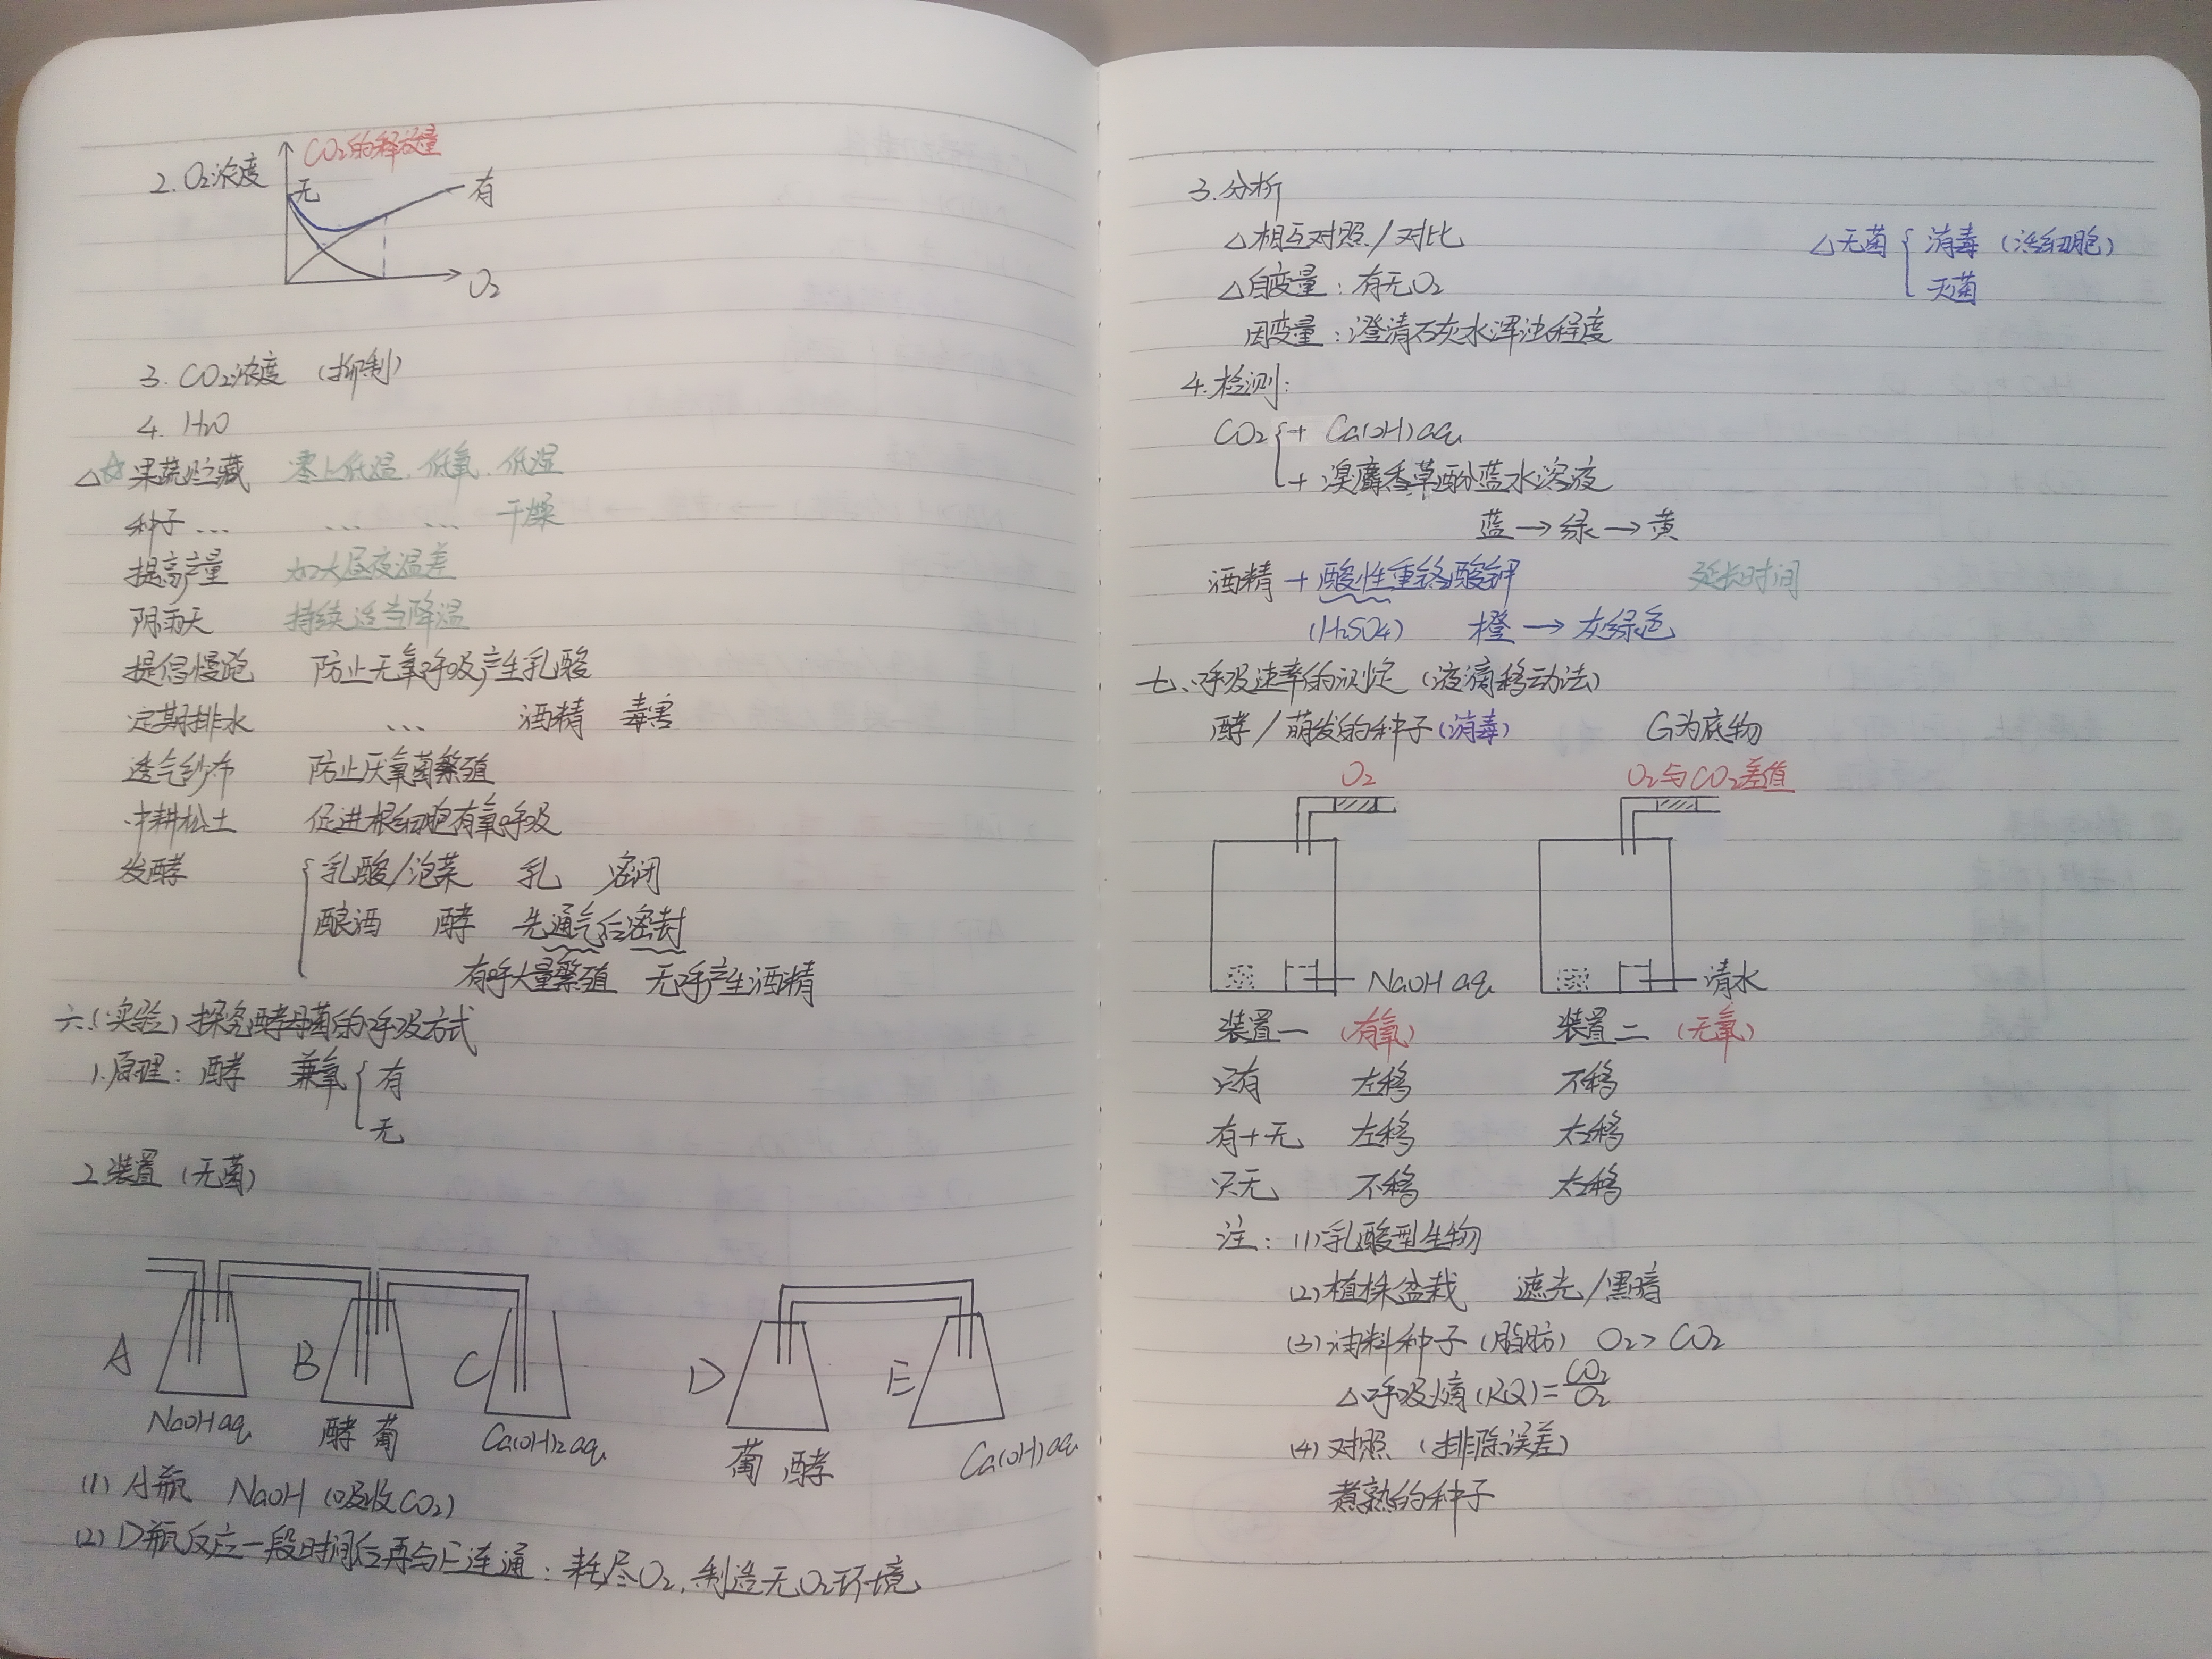 CO₂的释放量
2. O₂浓度
无
有
O₂
3. CO₂浓度 (抑制)
4. H₂O
△☆果蔬贮藏 零上低温、低氧、低湿
种子… … … 干燥
提高产量 加大昼夜温差
阴雨天 持续适当降温
提倡慢跑 防止无氧呼吸产生乳酸
定期排水 … 酒精 毒害
透气纱布 防止厌氧菌繁殖
中耕松土 促进根细胞有氧呼吸
发酵 乳酸/泡菜 乳 密闭
酿酒 酵 先通气后密封
有呼大量繁殖 无呼产生酒精
六、(实验) 探究酵母菌的呼吸方式
1.原理: 酵 兼氧 有
无
2.装置 (无菌)
A B C D E
NaOH aq 酵 葡 Ca(OH)₂ aq 葡 酵 Ca(OH) aq
(1) A瓶 NaOH (吸收CO₂)
(2) D瓶反应一段时间后再与E连通: 耗尽O₂, 制造无O₂环境
3.分析
△相互对照/对比
△无菌 消毒 (活细胞)
灭菌
△自变量: 有无O₂
因变量: 澄清石灰水浑浊程度
4.检测:
CO₂ + Ca(OH) aq
+ 溴麝香草酚蓝水溶液
蓝→绿→黄
酒精 + 酸性重铬酸钾 延长时间
(H₂SO₄) 橙→灰绿色
七、呼吸速率的测定 (液滴移动法)
酵/萌发的种子(消毒) G为底物
O₂ O₂与CO₂差值
NaOH aq 清水
装置一 (有氧) 装置二 (无氧)
只有 左移 不移
有+无 左移 右移
只无 不移 右移
注: (1)乳酸型生物
(2)植株盆栽 遮光/黑暗
(3)油料种子 (脂肪) O₂>CO₂
△呼吸熵(RQ)=CO₂/O₂
(4)对照 (排除误差)
煮熟的种子